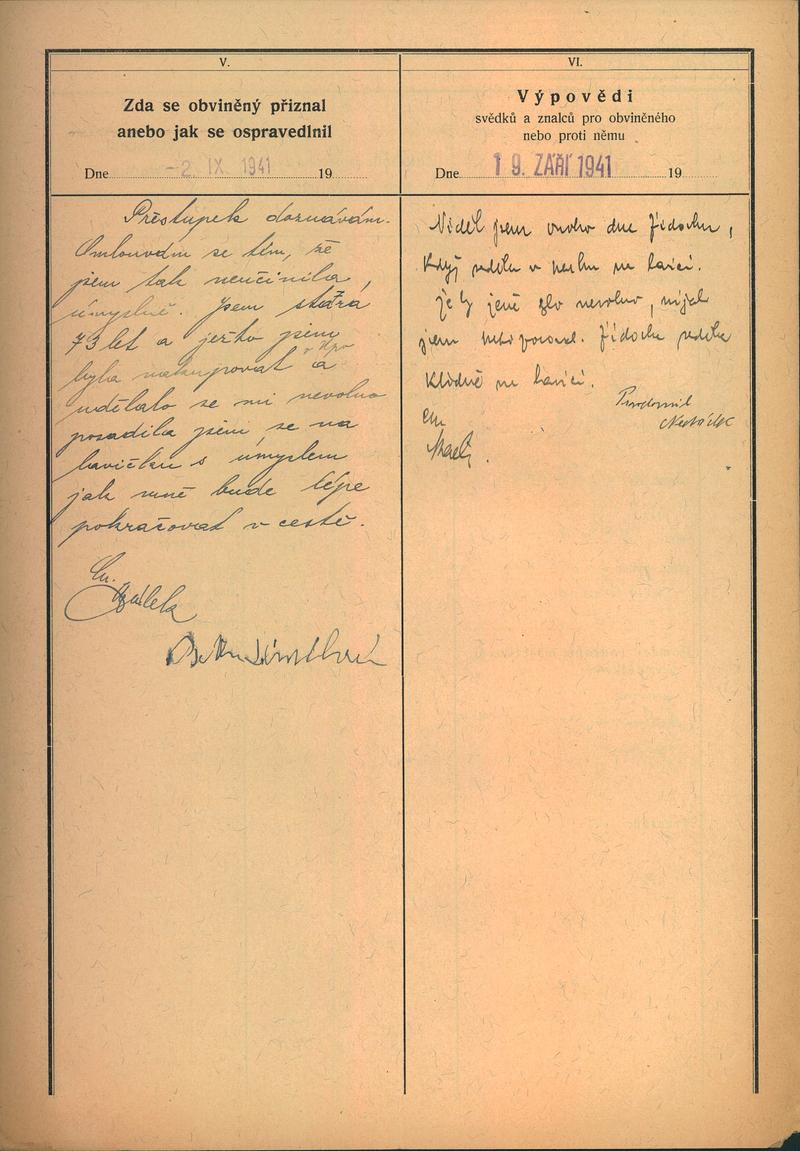 V.
Zda se obviněný přiznal
anebo jak se ospravedlnil
Dne -2. IX. 1941 19
Přestupek doznávám.
Omlouvám se tím, že
jsem tak neučinila
úmyslně. Jsem stará
73 let a ježto jsem
byla nakupovat a
udělalo se mi nevolno
posadila jsem se na
lavičku s úmyslem
jak mně bude lépe
pokračovat v cestě.
VI.
Výpovědi
svědků a znalců pro obviněného
nebo proti němu
Dne 19. ZÁŘÍ 1941 19
Viděl jsem onoho dne židovku,
když seděla v parku na lavici.
že by jené zle nevolno, nijak
jsem nepozoroval. Židovka seděla
klidně na lavici.